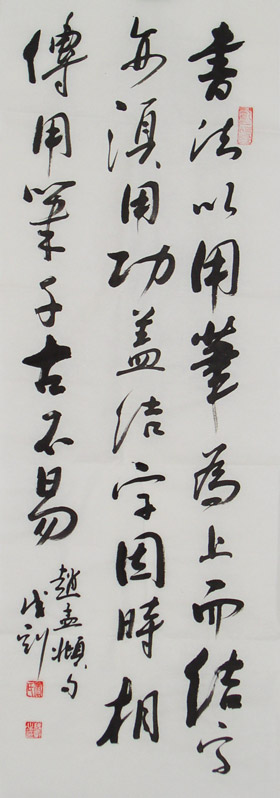 書法以用筆為上而結字
亦須用功盖結字因時相
傳用筆千古不易
趙孟頫句